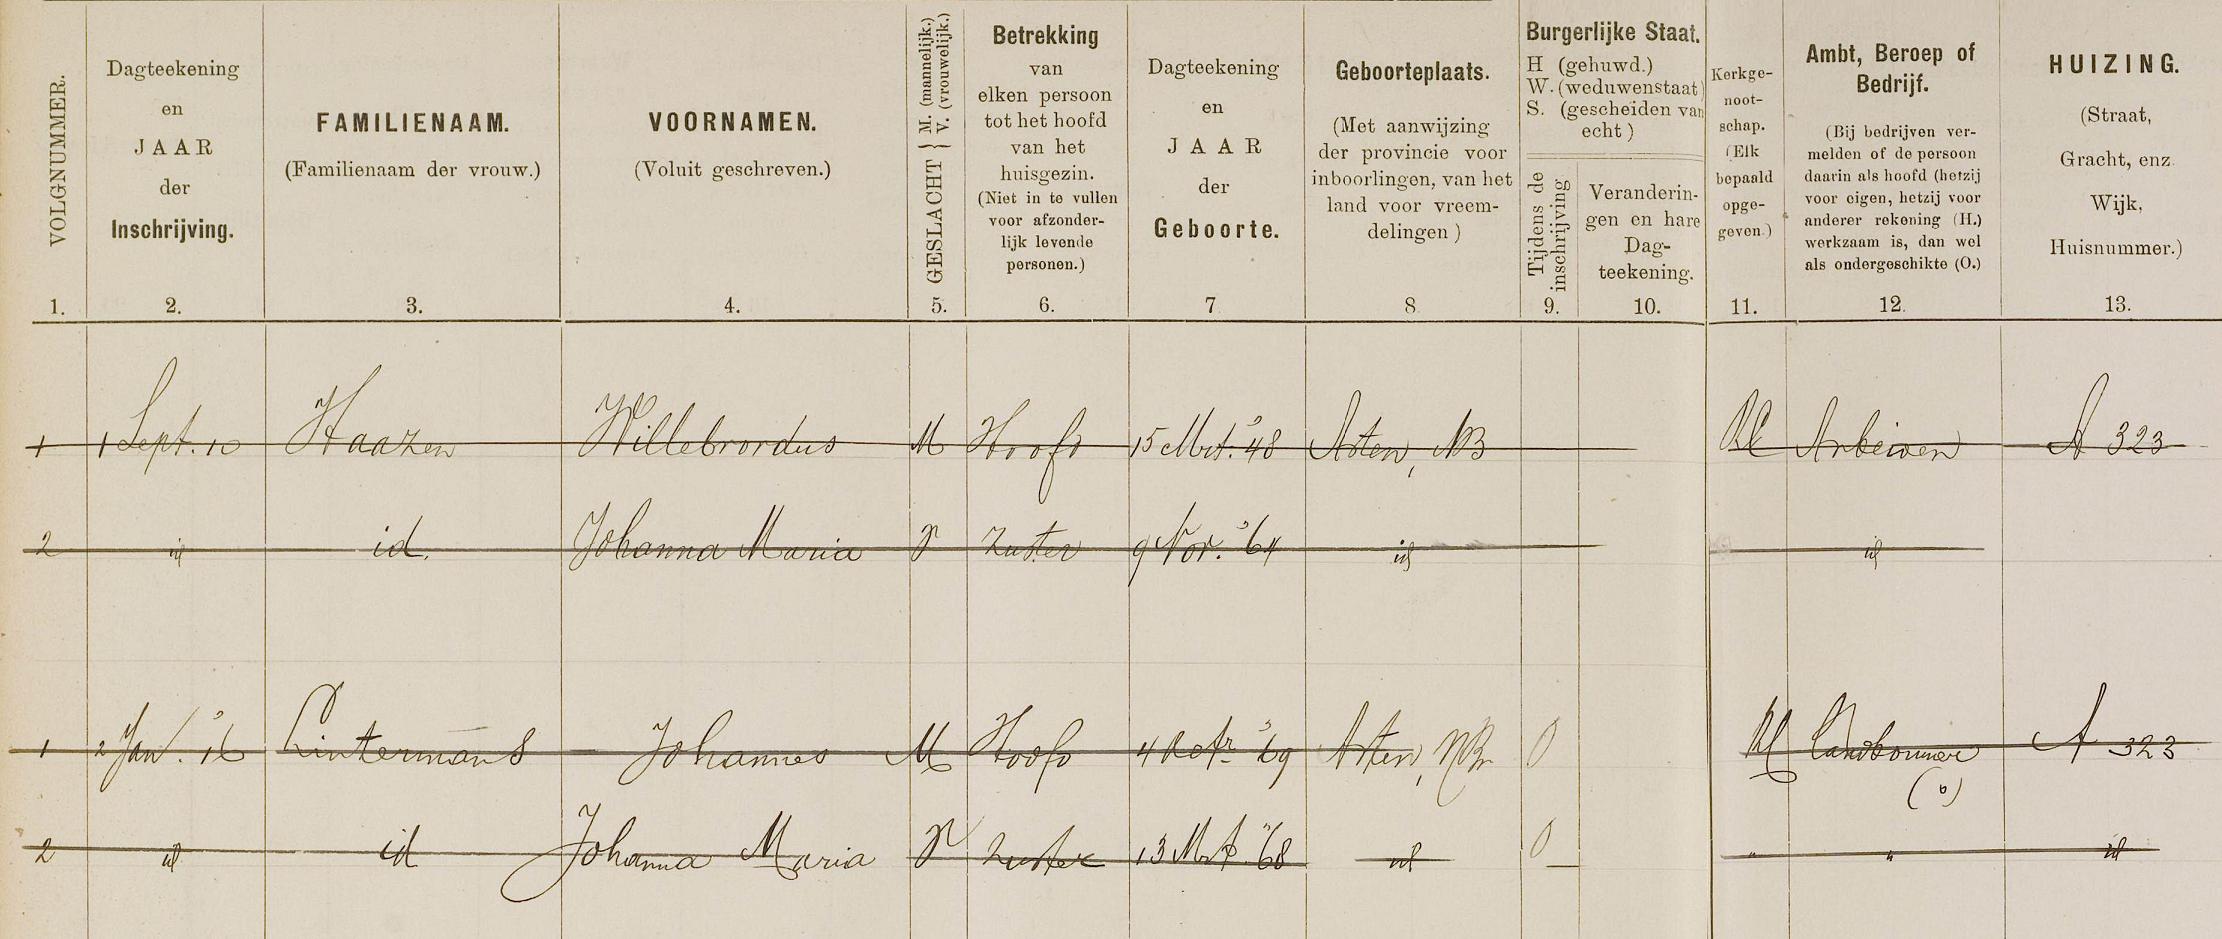 VOLGNUMMER.
Dagteekening
en
JAAR
der
Inschrijving.
FAMILIENAAM.
(Familienaam der vrouw.)
VOORNAMEN.
(Voluit geschreven.)
GESLACHT { M. (mannelijk.)
V. (vrouwelijk.)
Betrekking
van
elken persoon
tot het hoofd
van het
huisgezin.
(Niet in te vullen
voor afzonder-
lijk levende
personen.)
Dagteekening
en
JAAR
der
Geboorte.
Geboorteplaats.
(Met aanwijzing
der provincie voor
inboorlingen, van het
land voor vreem-
delingen)
Burgerlijke Staat.
H (gehuwd.)
W. (weduwenstaat)
S. (gescheiden van
echt)
Tijdens de
inschrijving
Veranderin-
gen en hare
Dag-
teekening.
Kerkge-
noot-
schap.
(Elk
bepaald
opge-
geven.)
Ambt, Beroep of
Bedrijf.
(Bij bedrijven ver-
melden of de persoon
daarin als hoofd (hetzij
voor eigen, hetzij voor
anderer rekening (H.)
werkzaam is, dan wel
als ondergeschikte (O.)
HUIZING.
(Straat,
Gracht, enz.
Wijk,
Huisnummer.)
1. 2. 3. 4. 5. 6. 7 8 9. 10. 11. 12. 13.
1 1 Sept. 10 Haazen Willebrordus M Hoofd 15 Mrt. '48 Asten, NB RC A 323
2 id id. Johanna Maria V Zuster 9 Nov. '64 id id
1 2 Jan. '16 Lintermans Johannes M Hoofd 4 Octr '69 Asten, NBr O RC Landbouwer A 323
(o)
2 id id Johanna Maria V Zuster 13 Mrt '68 id O " " id